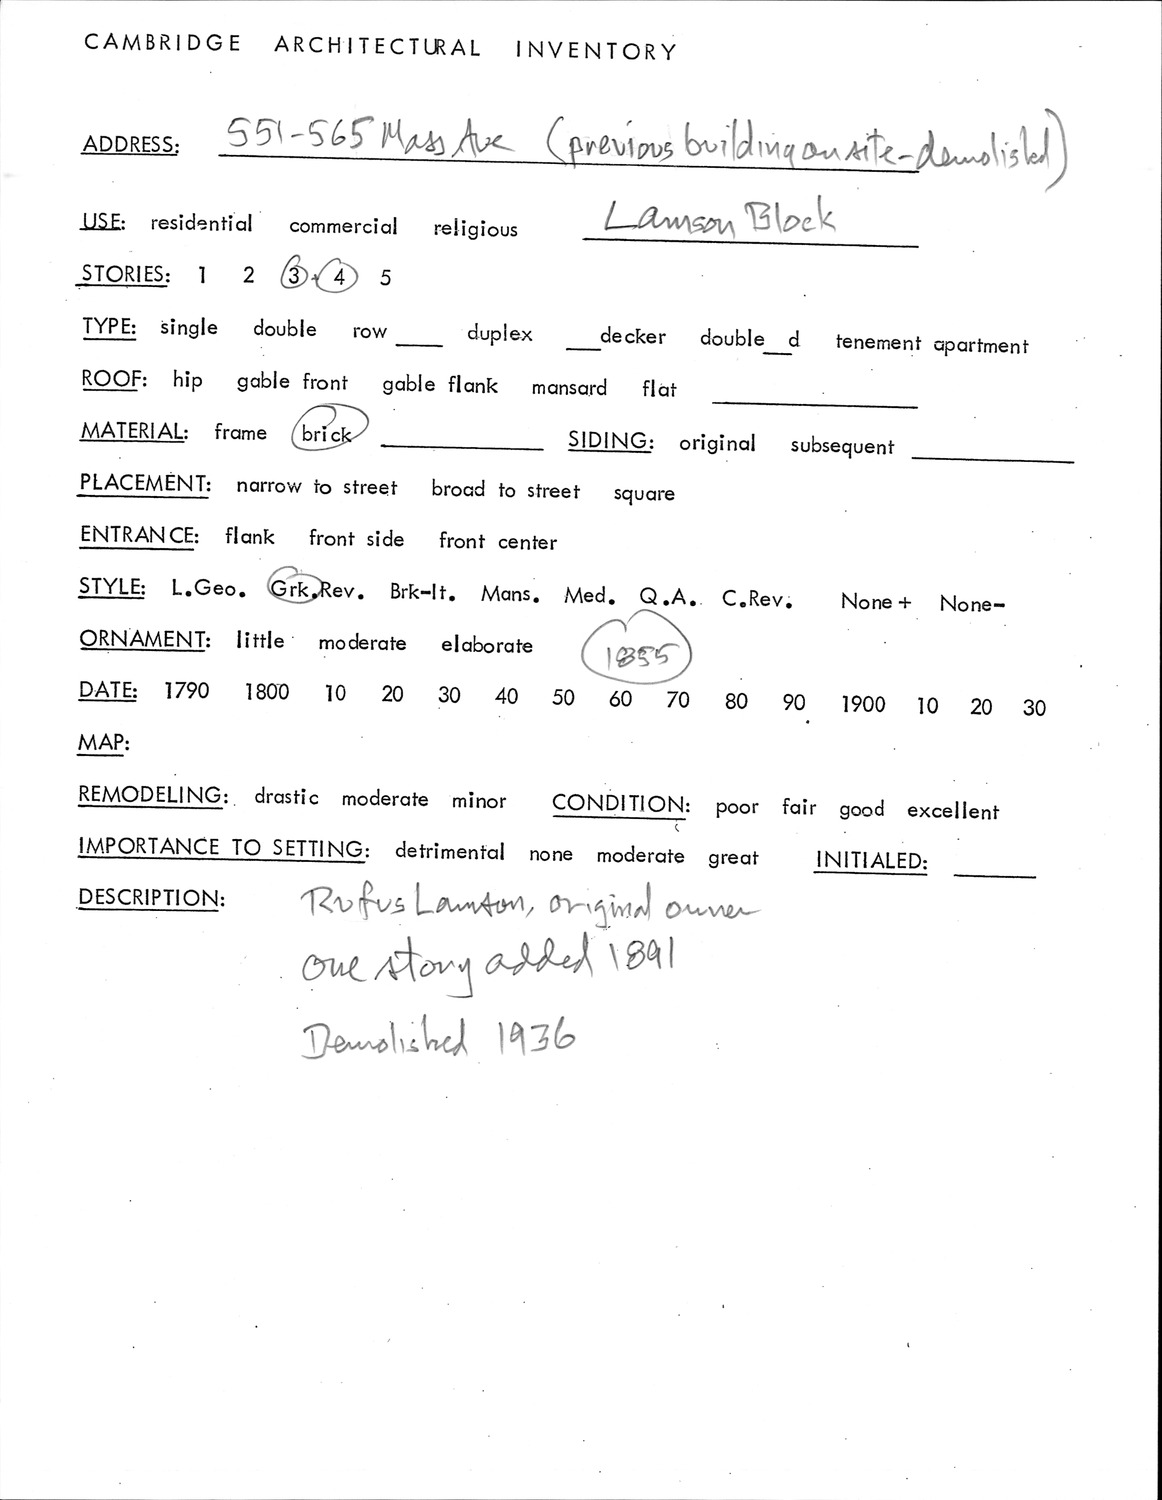 CAMBRIDGE ARCHITECTURAL INVENTORY
ADDRESS: 551-565 Mass Ave (previous building on site - demolished)
USE: residential commercial religious Lamson Block
STORIES: 1 2 3 4 5
TYPE: single double row ____ duplex ___decker double__d tenement apartment
ROOF: hip gable front gable flank mansard flat
MATERIAL: frame brick SIDING: original subsequent
PLACEMENT: narrow to street broad to street square
ENTRANCE: flank front side front center
STYLE: L.Geo. Grk.Rev. Brk-It. Mans. Med. Q.A. C.Rev. None+ None-
ORNAMENT: little moderate elaborate 1855
DATE: 1790 1800 10 20 30 40 50 60 70 80 90 1900 10 20 30
MAP:
REMODELING: drastic moderate minor CONDITION: poor fair good excellent
IMPORTANCE TO SETTING: detrimental none moderate great INITIALED:
DESCRIPTION: Rufus Lamson, original owner
one story added 1891
Demolished 1936